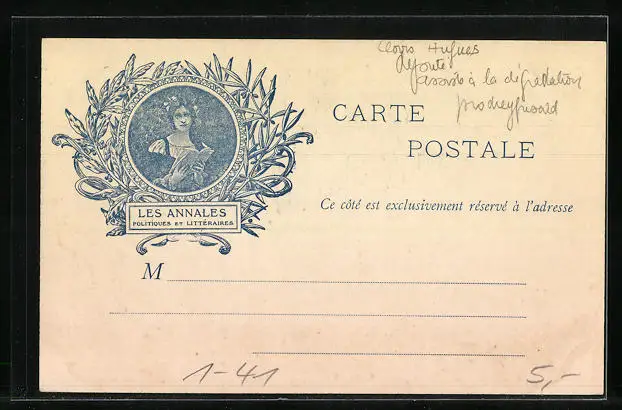 Clovis Hugues
député
favorable à la dégradation
pro dreyfusard
CARTE
POSTALE
LES ANNALES
POLITIQUES ET LITTÉRAIRES
Ce côté est exclusivement réservé à l'adresse
M
1-41
5,-